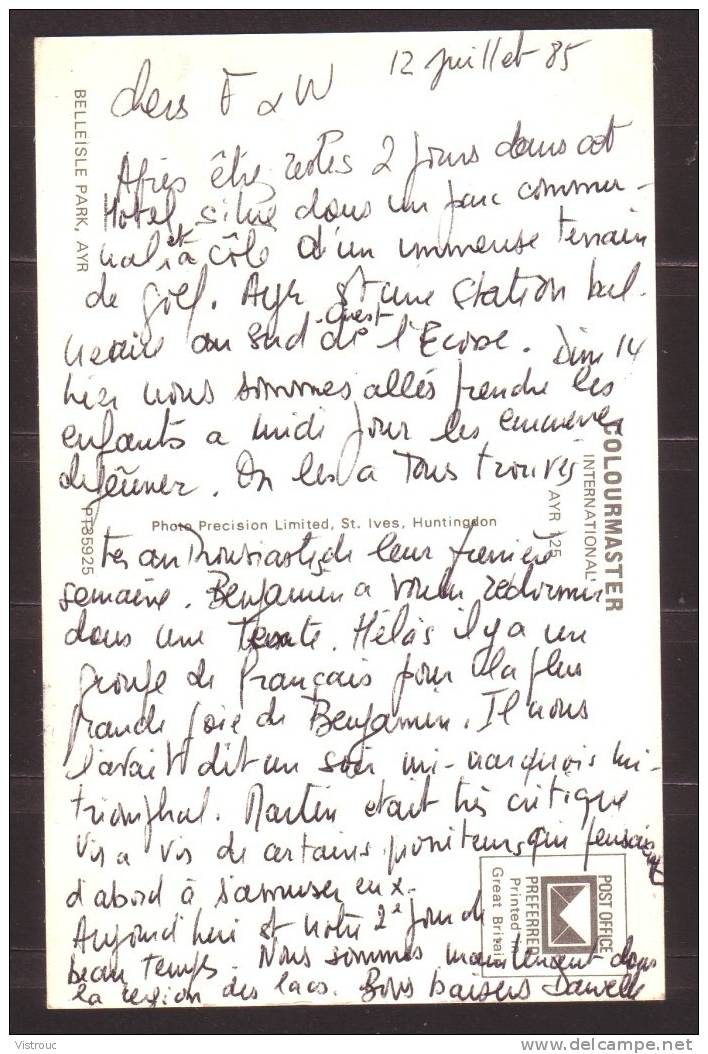 12 juillet 85
chers F & W
Après être restés 2 jours dans cet
Hotel, situé dans un parc commu-
nal, et à côté d'un immense terrain
de golf. Ayr est une station bal-
néaire au sud-ouest de l'Ecosse. Dim 14
hier nous sommes allés prendre les
enfants a midi pour les emmener
déjeûner. On les a tous trouvés
très enthousiastes de leur première
semaine. Benjamin a voulu redormir
dans une Tente. Hélas il y a un
groupe de français pour la plus
grande joie de Benjamin. Il nous
l'avait dit un soir mi-narquois mi-
triomphal. Martin etait très critique
vis a vis de certains moniteurs qui pensaient
d'abord à s'amuser eux.
Aujourd'hui est notre 2è jour de
beau temps. Nous sommes maintenant dans
la region des lacs. Bons baisers Danielle
BELLEISLE PARK, AYR
PT35925
Photo Precision Limited, St. Ives, Huntingdon
COLOURMASTER
INTERNATIONAL
AYR 125
POST OFFICE
PREFERRED
Printed in
Great Britain
Vistrouc
www.delcampe.net